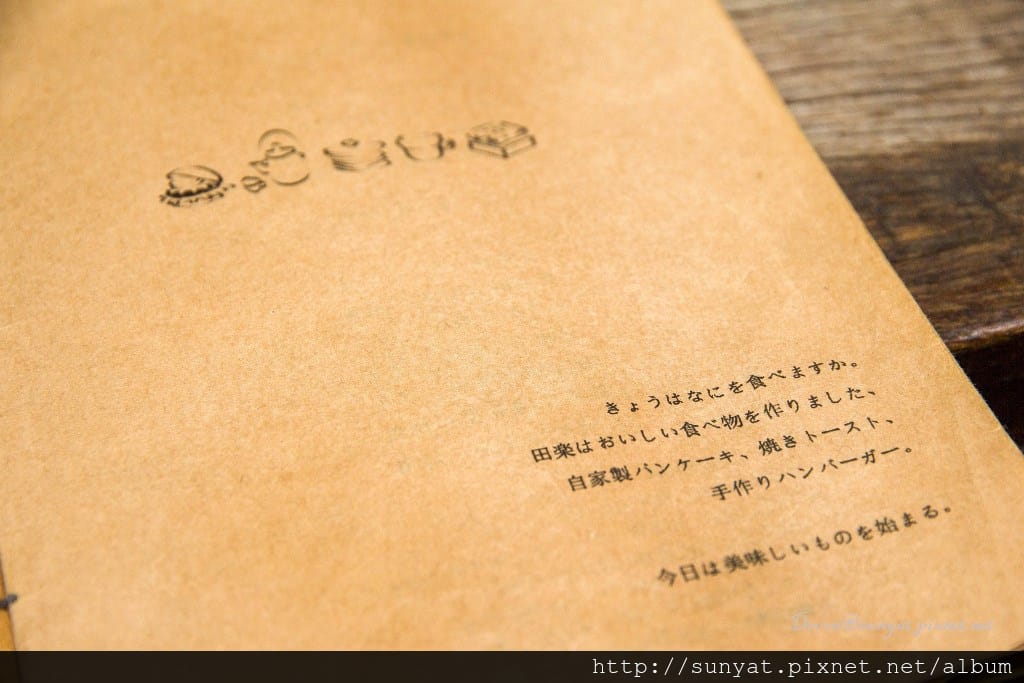 きょうはなにを食べますか。
田楽はおいしい食べ物を作りました、
自家製パンケーキ、焼きトースト、
手作りハンバーガー。
今日は美味しいものを始まる。
http://sunyat.pixnet.net/album